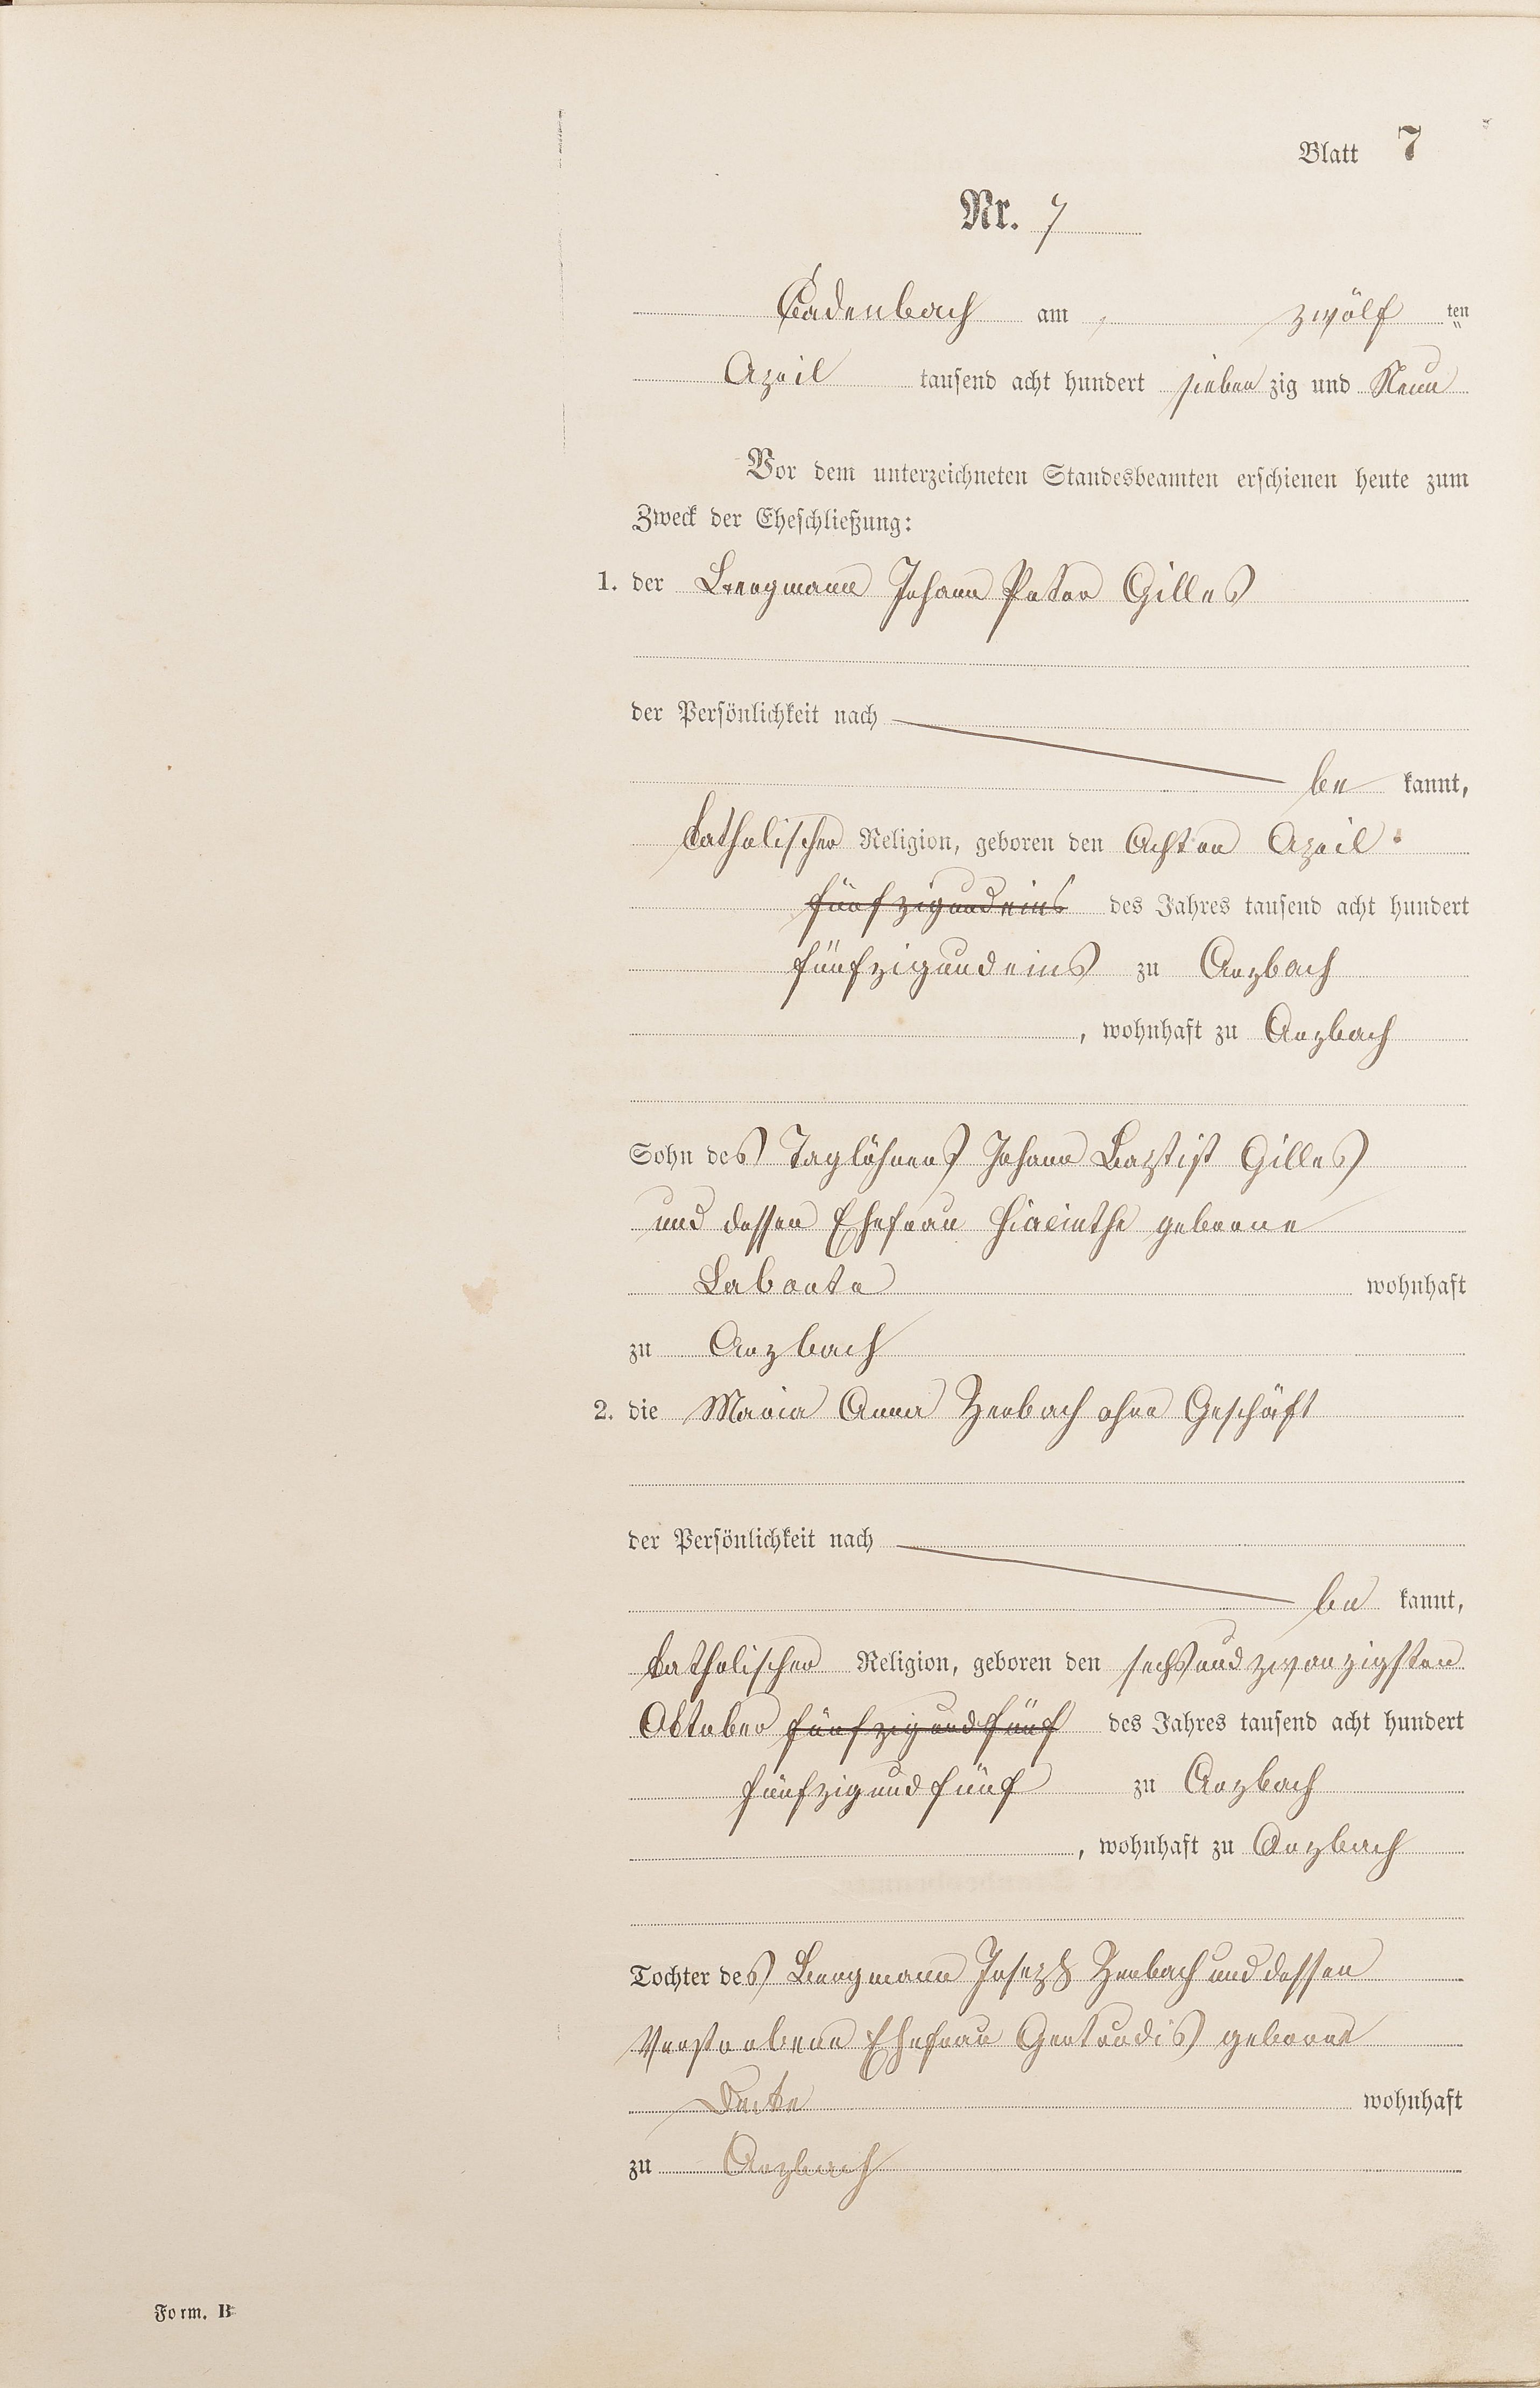 Blatt 7
Nr. 7
Cadenbach am zwölf ten
April tausend acht hundert sieben zig und Neun
Vor dem unterzeichneten Standesbeamten erschienen heute zum
Zweck der Eheschließung:
1. der Bergmann Johann Peter Gilles
der Persönlichkeit nach
be kannt,
katholischer Religion, geboren den Achten April
fünfzigundeins des Jahres tausend acht hundert
fünfzigundeins zu Arzbach
, wohnhaft zu Arzbach
Sohn des Taglöhners Johann Baptist Gilles
und dessen Ehefrau Hiacinthe geborne
wohnhaft
zu Arzbach
2. die Maria Anna Zerbach ohne Geschäft
der Persönlichkeit nach
be kannt,
katholischer Religion, geboren den sechsundzwanzigsten
Oktober fünfzigundfünf des Jahres tausend acht hundert
fünfzigundfünf zu Arzbach
, wohnhaft zu Arzbach
Tochter des Bergmann Joseph Zerbach und dessen
Verstorbene Ehefrau Gertrudis geborne
wohnhaft
zu Arzbach
Form. B